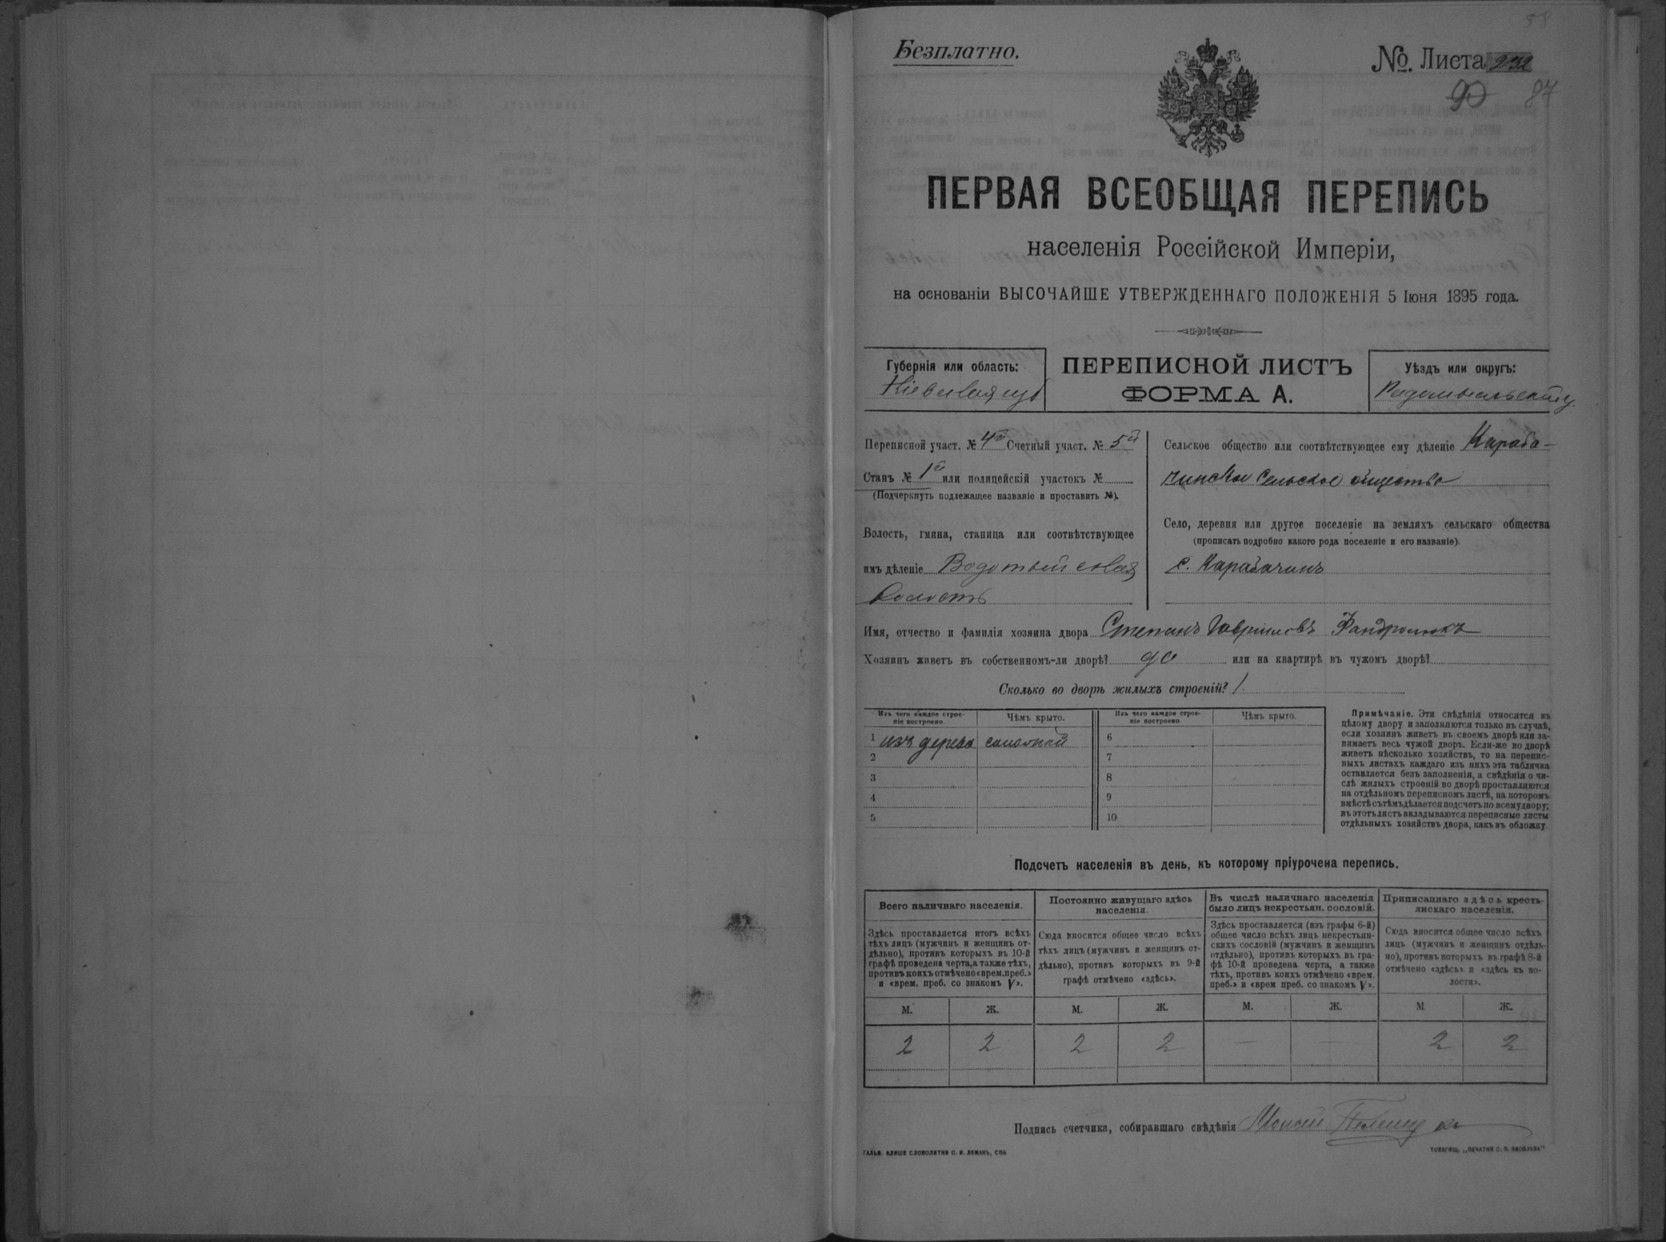 Безплатно.
№. Листа 232
90 87
ПЕРВАЯ ВСЕОБЩАЯ ПЕРЕПИСЬ
населенія Россійской Имперіи,
на основаніи ВЫСОЧАЙШЕ УТВЕРЖДЕННАГО ПОЛОЖЕНІЯ 5 Іюня 1895 года.
Губернія или область:
Кіевская губ
ПЕРЕПИСНОЙ ЛИСТЪ
ФОРМА А.
Уѣздъ или округъ:
Радомысльскій у.
Переписной участ. № 4й Счетный участ. № 5й
Станъ № 1й или полицейскій участокъ №
(Подчеркнуть подлежащее названіе и проставить №).
Волость, гмина, станица или соотвѣтствующее
имъ дѣленіе Водотыйская
Волость
Сельское общество или соотвѣтствующее ему дѣленіе Караба-
чинское Сельское общество
Село, деревня или другое поселеніе на земляхъ сельскаго общества
(прописать подробно какого рода поселеніе и его названіе).
с. Карабачинъ
Имя, отчество и фамилія хозяина двора Степанъ Гавриловъ
Хозяинъ живетъ въ собственномъ-ли дворѣ? да или на квартирѣ въ чужомъ дворѣ?
Сколько во дворѣ жилыхъ строеній? 1
Изъ чего каждое строе-
ніе построено.
Чѣмъ крыто.
1 изъ дерева соломой
2
3
4
5
Изъ чего каждое строе-
ніе построено.
Чѣмъ крыто.
6
7
8
9
10
Примѣчаніе. Эти свѣдѣнія относятся къ
цѣлому двору и заполняются только въ случаѣ,
если хозяинъ живетъ въ своемъ дворѣ или за-
нимаетъ весь чужой дворъ. Если-же во дворѣ
живетъ нѣсколько хозяйствъ, то на перепис-
ныхъ листахъ каждаго изъ нихъ эта табличка
оставляется безъ заполненія, а свѣдѣнія о чи-
слѣ жилыхъ строеній во дворѣ проставляются
на отдѣльномъ переписномъ листѣ, на которомъ
вмѣстѣ съ тѣмъ дѣлается подсчетъ по всему двору;
въ этотъ листъ вкладываются переписные листы
отдѣльныхъ хозяйствъ двора, какъ въ обложку.
Подсчетъ населенія въ день, къ которому пріурочена перепись.
Всего наличнаго населенія.
Здѣсь проставляется итогъ всѣхъ
тѣхъ лицъ (мужчинъ и женщинъ от-
дѣльно), противъ которыхъ въ 10-й
графѣ проведена черта, а также тѣхъ,
противъ коихъ отмѣчено «врем. преб.»
и «врем. преб. со знакомъ V».
Постоянно живущаго здѣсь
населенія.
Сюда вносится общее число всѣхъ
тѣхъ лицъ (мужчинъ и женщинъ от-
дѣльно), противъ которыхъ въ 9-й
графѣ отмѣчено «здѣсь».
Въ числѣ наличнаго населенія
было лицъ некрестьян. сословій.
Здѣсь проставляется (изъ графы 6-й)
общее число всѣхъ лицъ некрестьян-
скихъ сословій (мужчинъ и женщинъ
отдѣльно), противъ которыхъ въ гра-
фѣ 10-й проведена черта, а также
тѣхъ, противъ коихъ отмѣчено «врем.
преб.» и «врем преб. со знакомъ V».
Приписаннаго здѣсь кресть-
янскаго населенія.
Сюда вносится общее число всѣхъ
лицъ (мужчинъ и женщинъ отдѣль-
но), противъ которыхъ въ графѣ 8-й
отмѣчено «здѣсь» и «здѣсь въ во-
лости».
М. Ж. М. Ж. М. Ж. М Ж.
2 2 2 2 — — 2 2
Подпись счетчика, собиравшаго свѣдѣнія Моисей
ГАЛЬВ. КЛИШЕ СЛОВОЛИТНИ О. И. ЛЕМАНЪ, СПБ.
ТОВАРИЩ. „ПЕЧАТНЯ С. П. ЯКОВЛЕВА"